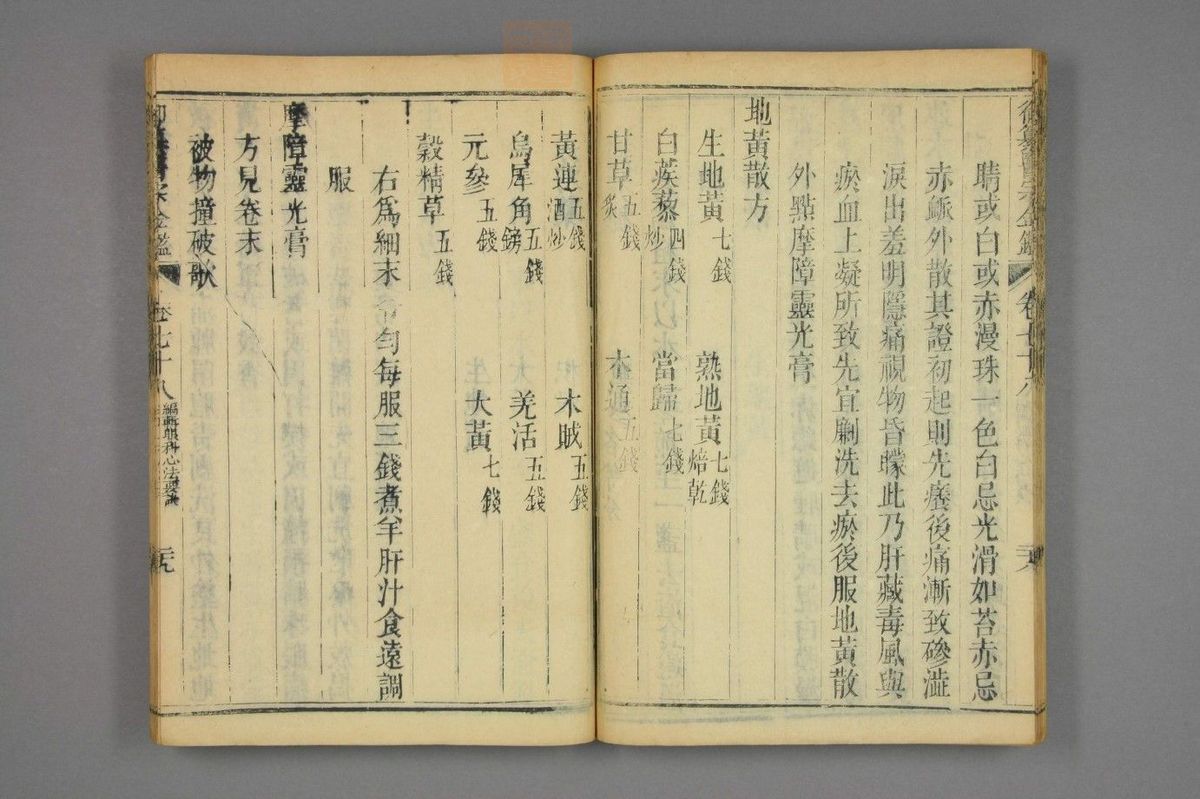 御纂醫宗金鑑 卷七十八 二十八
睛或白或赤漫珠一色白忌光滑如苔赤忌
赤脈外散其證初起則先癢後痛漸致磣澁
淚出羞明隱痛視物昏矇此乃肝藏毒風與
瘀血上凝所致先宜劆洗去瘀後服地黃散
外點摩障靈光膏
地黃散方
生地黃七錢 熟地黃七錢焙乾
白蒺藜四錢炒 當歸七錢
甘草五錢炙 木通五錢
黃連五錢酒炒 木賊五錢
烏犀角五錢鎊 羌活五錢
元參五錢 大黃七錢
穀精草五錢
右爲細末勻每服三錢煮羊肝汁食遠調
服
摩障靈光膏
方見卷末
被物撞破歌
御纂醫宗金鑑 卷七十八 編輯眼科心法要訣 二十九